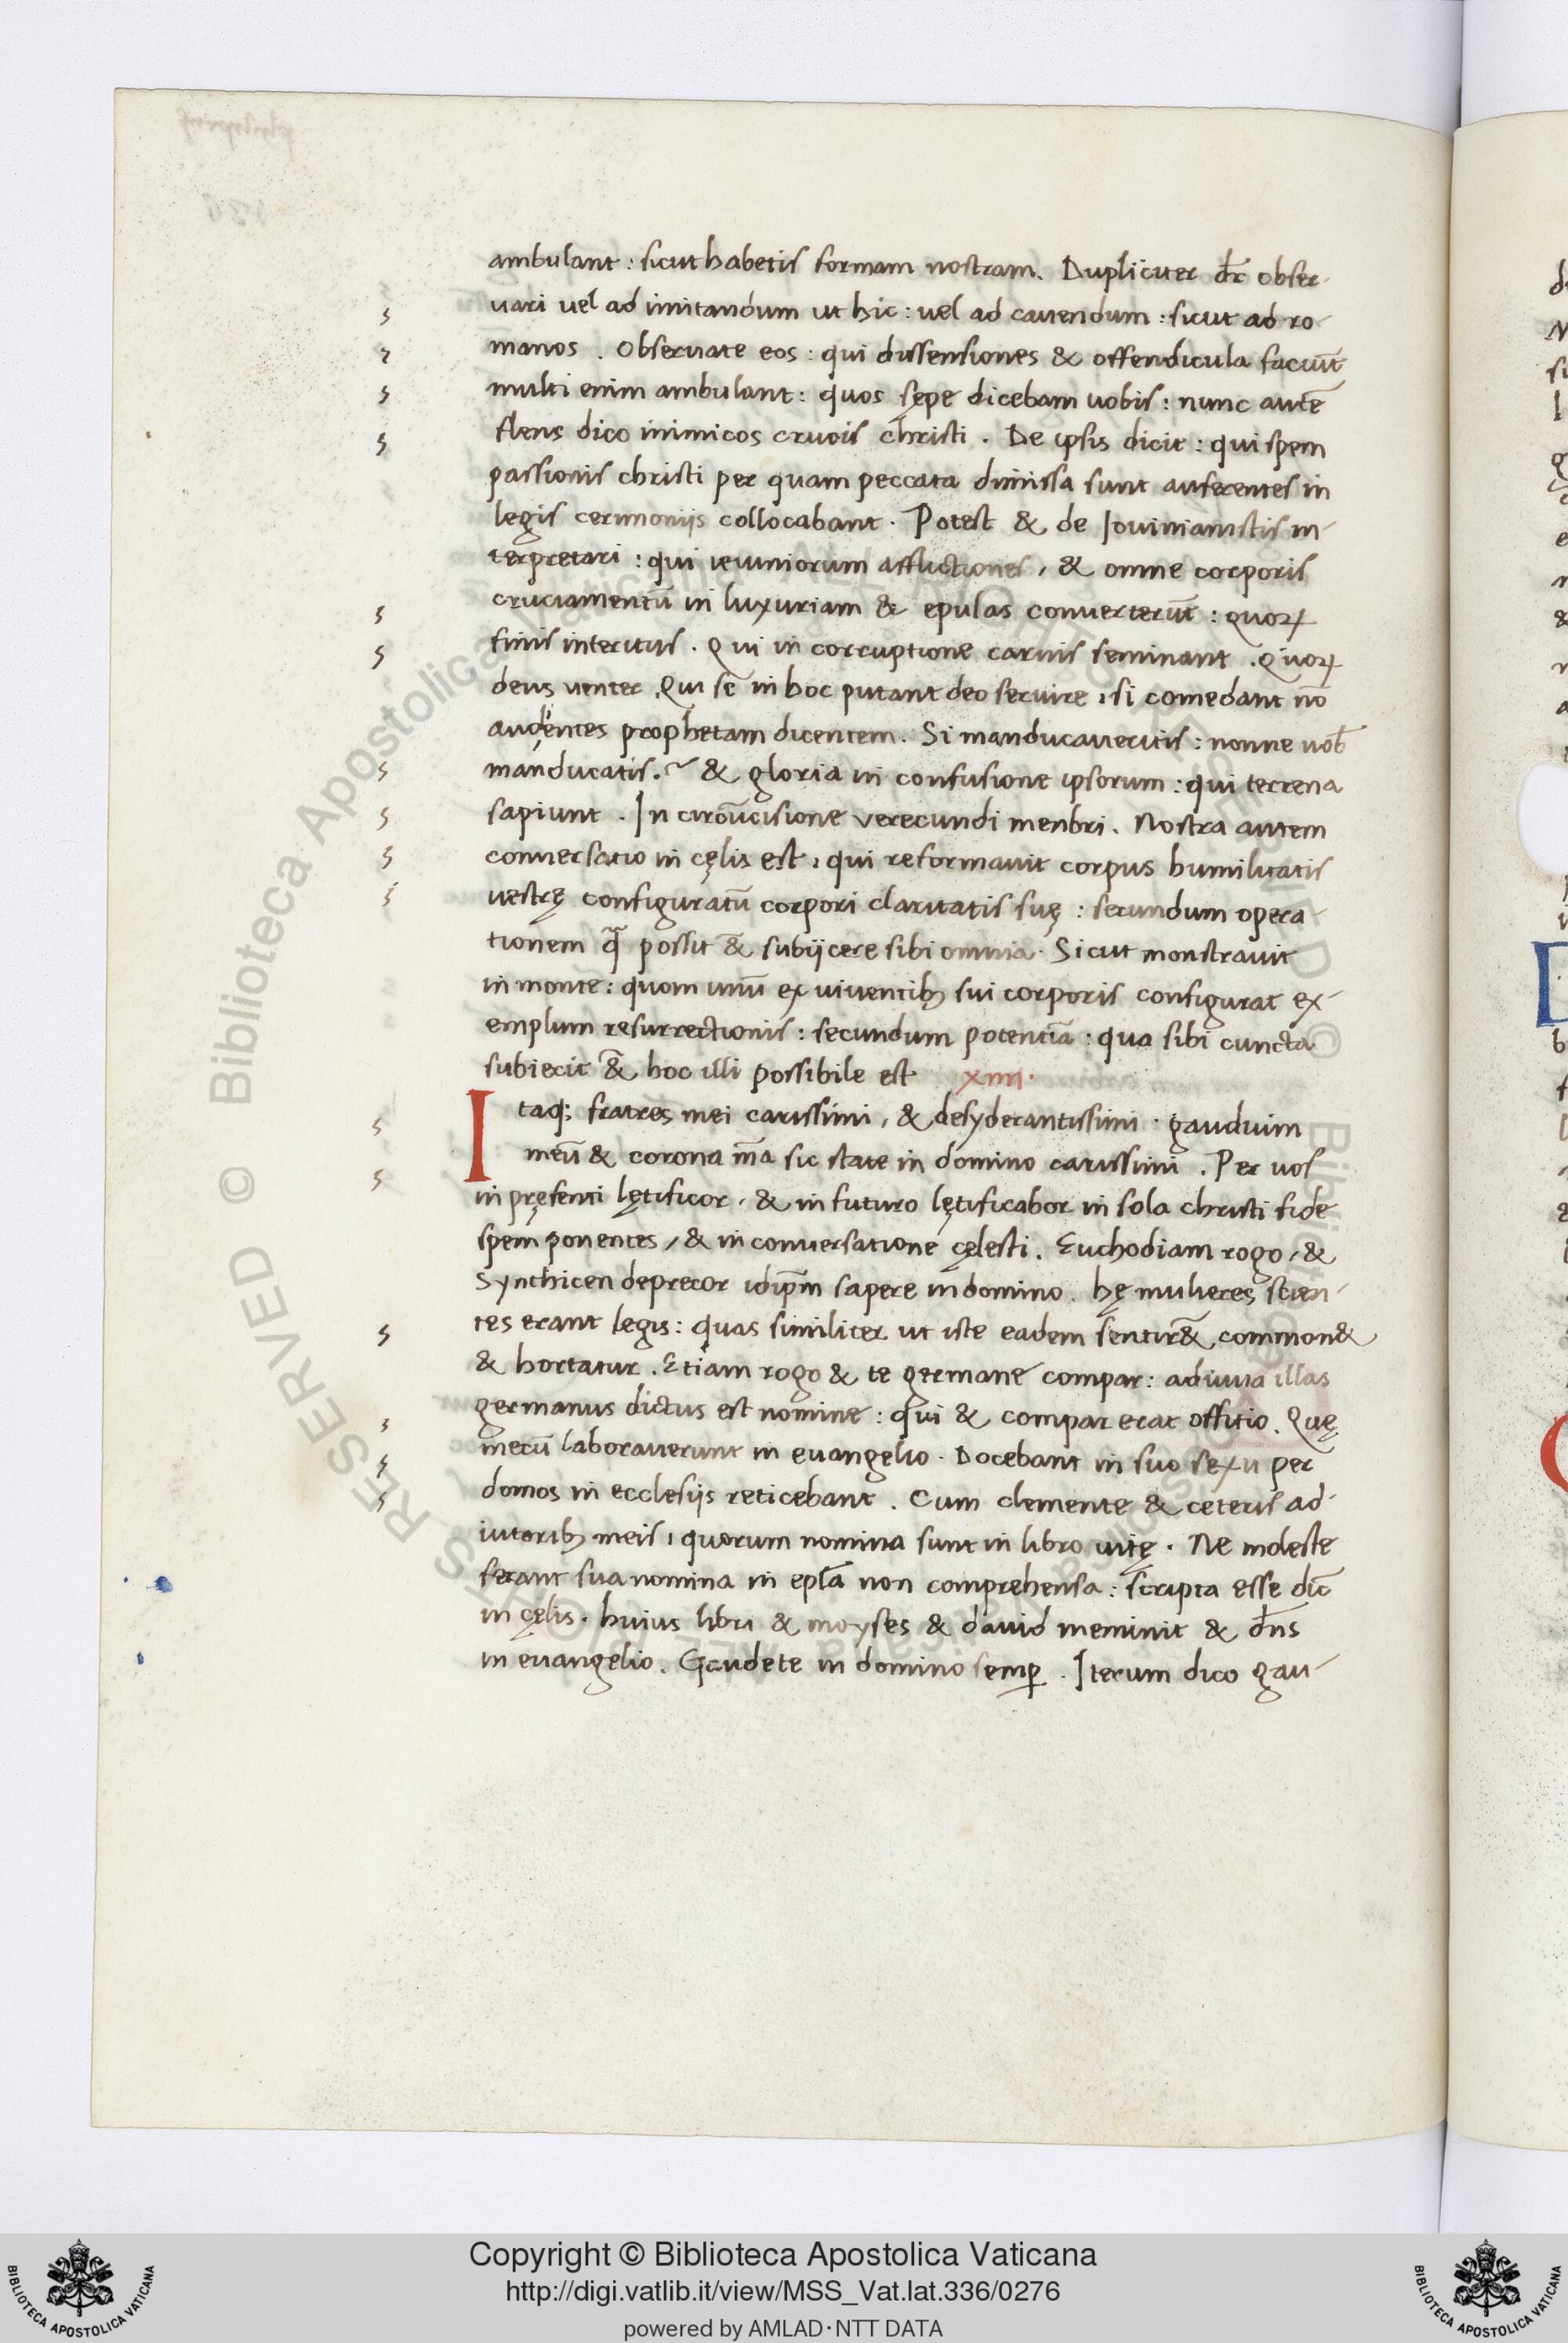 ambulant : sicut habetis formam nostram. Dupliciter dr̄ obser-
uari uel ad imitandum ut hic : uel ad cauendum : sicut ad ro-
manos . Obseruate eos : qui dissensiones & offendicula faciūt
multi enim ambulant : quos sępe dicebam uobis : nunc autē
flens dico inimicos crucis christi . De ipsis dicit : qui spem
passionis christi per quam peccata dimissa sunt auferentes in
legis cerimonijs collocabant . Potest & de Iouinianistis in-
terpretari : qui ieiuniorum afflictiones , & omne corporis
cruciamentū in luxuriam & epulas conuerterūt : quoꝝ
finis interitus . Qui in corruptione carnis seminant . Quoꝝ
deus uenter . Qui se in hoc putant deo seruire , si comedant nō
audientes prophetam dicentem . Si manducaueritis : nonne uob̄
manducatis . ~ & gloria in confusione ipsorum : qui terrena
sapiunt . In circūcisione verecundi menbri . Nostra autem
conuersatio in cęlis est , qui reformauit corpus humilitatis
uestrę configuratū corpori claritatis suę : secundum opera-
tionem q̄ possit & subijcere sibi omnia . Sicut monstrauit
in monte : quom unū ex uiuentibꝫ sui corporis configurat ex-
emplum resurrectionis : secundum potentiā : qua sibi cuncta
subiecit & hoc illi possibile est xiiii .
Itaqꝫ fratres mei carissimi , & desyderantissimi . gaudium
meū & corona m̄a sic state in domino carissimi . Per uos
in pręsenti lętificor , & in futuro lętificabor in sola christi fide
spem ponentes , & in conuersatione cęlesti . Euchodiam rogo , &
Synthicen deprecor idip̄m sapere in domino . hę mulieres scien-
tes erant legis : quas similiter ut iste eadem sentir& common&
& hortatur . Etiam rogo & te germane compar : adiuua illas
germanus dictus est nomine : qui & compar erat offitio . Quę
mecū laborauerunt in euangelio . Docebant in suo sexu per
domos in ecclesijs reticebant . Cum clemente & ceteris ad-
iutoribꝫ meis , quorum nomina sunt in libro uitę . Ne moleste
ferant sua nomina in ep̄la non comprehensa : scripta esse dic̄
in cęlis . huius libri & moyses & dauid meminit & dn̄s
in euangelio . Gaudete in domino semꝑ . Iterum dico gau-
Copyright © Biblioteca Apostolica Vaticana
http://digi.vatlib.it/view/MSS_Vat.lat.336/0276
powered by AMLAD·NTT DATA